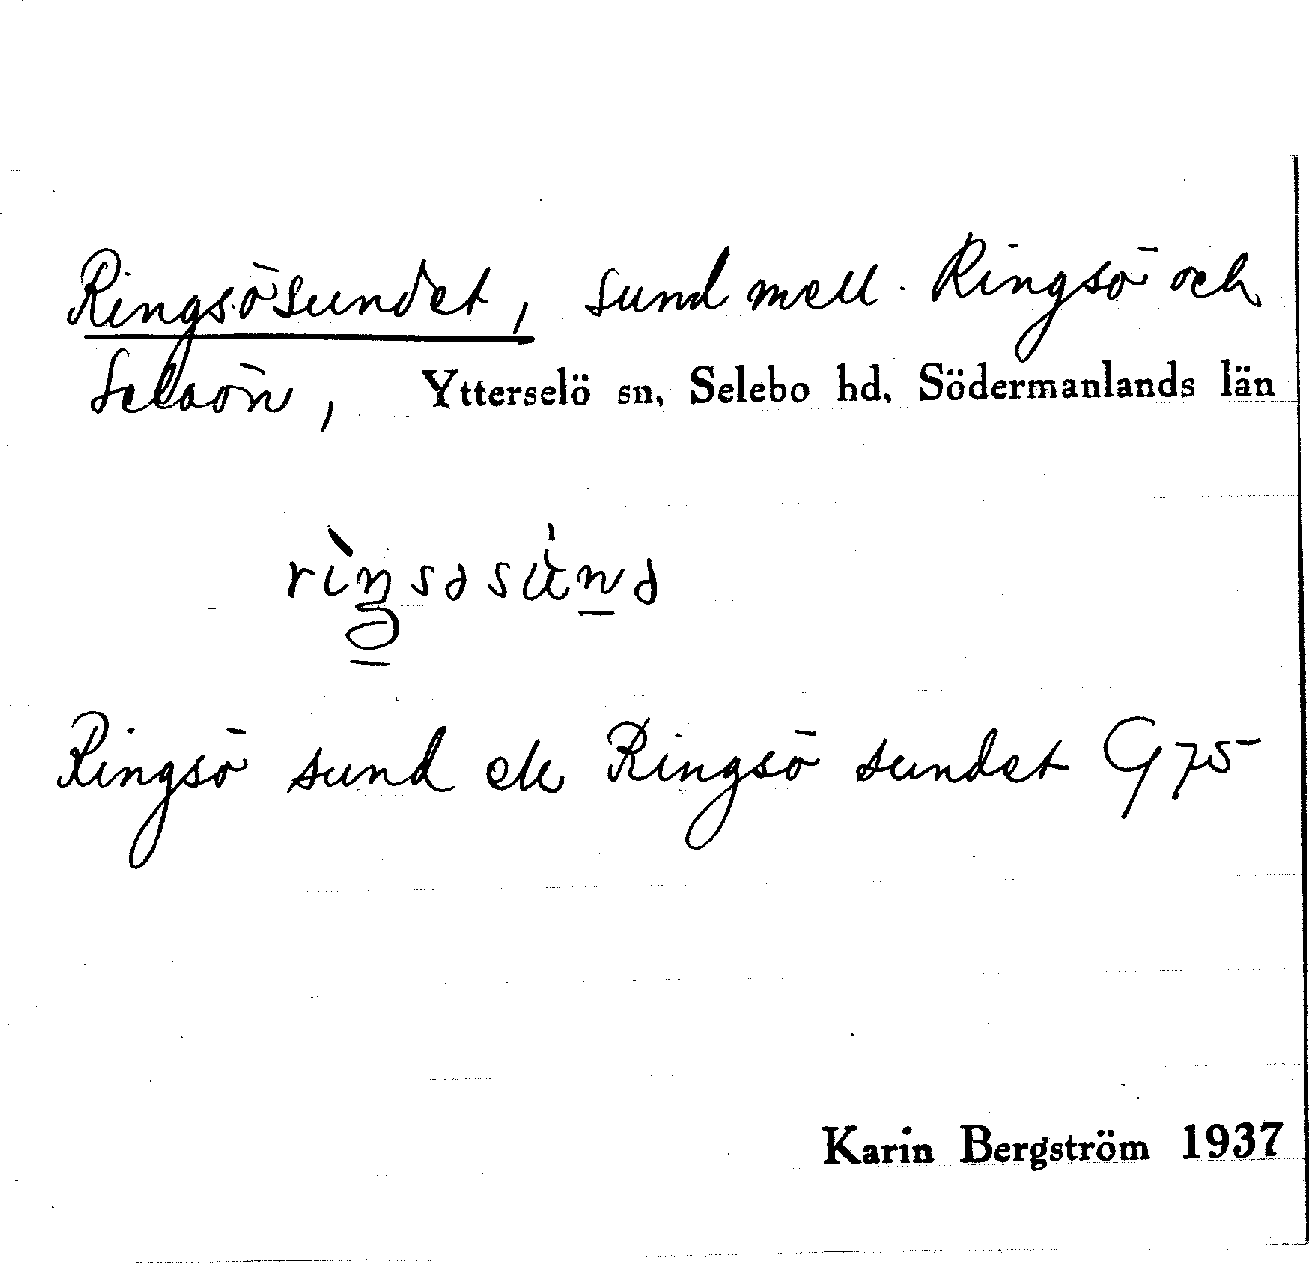 Ringsösundet, sund mell. Ringsö och
Selaön, Ytterselö sn, Selebo hd, Södermanlands län
rìŋsəsùnə
Ringsö sund el. Ringsö sundet G 75
Karin Bergström 1937